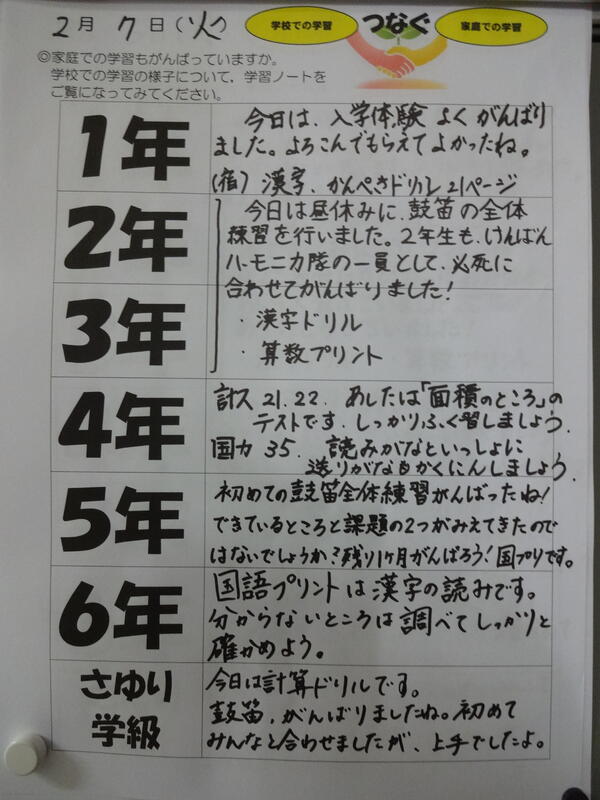 2月 7日(火)
学校での学習 つなぐ 家庭での学習
◎家庭での学習もがんばっていますか。
学校での学習の様子について，学習ノートを
ご覧になってみてください。
1年
今日は、入学体験 よく がんばり
ました。よろこんでもらえてよかったね。
(宿) 漢字、かんぺきドリル21ページ
2年
3年
今日は昼休みに、鼓笛の全体
練習を行いました。2年生も、けんばん
ハーモニカ隊の一員として、必死に
合わせてがんばりました!
・漢字ドリル
・算数プリント
4年
計ス 21.22. あしたは「面積のところ」の
テストです．しっかりふく習しましょう．
国力 35. 読みがなといっしょに
送りがなもかくにんしましょう．
5年
初めての鼓笛全体練習がんばったね!
できているところと課題の2つがみえてきたので
はないでしょうか?残り1ヶ月がんばろう!国プリです。
6年
国語プリントは漢字の読みです。
分からないところは調べてしっかりと
確かめよう。
さゆり
学級
今日は計算ドリルです。
鼓笛、がんばりましたね。初めて
みんなと合わせましたが、上手でしたよ。